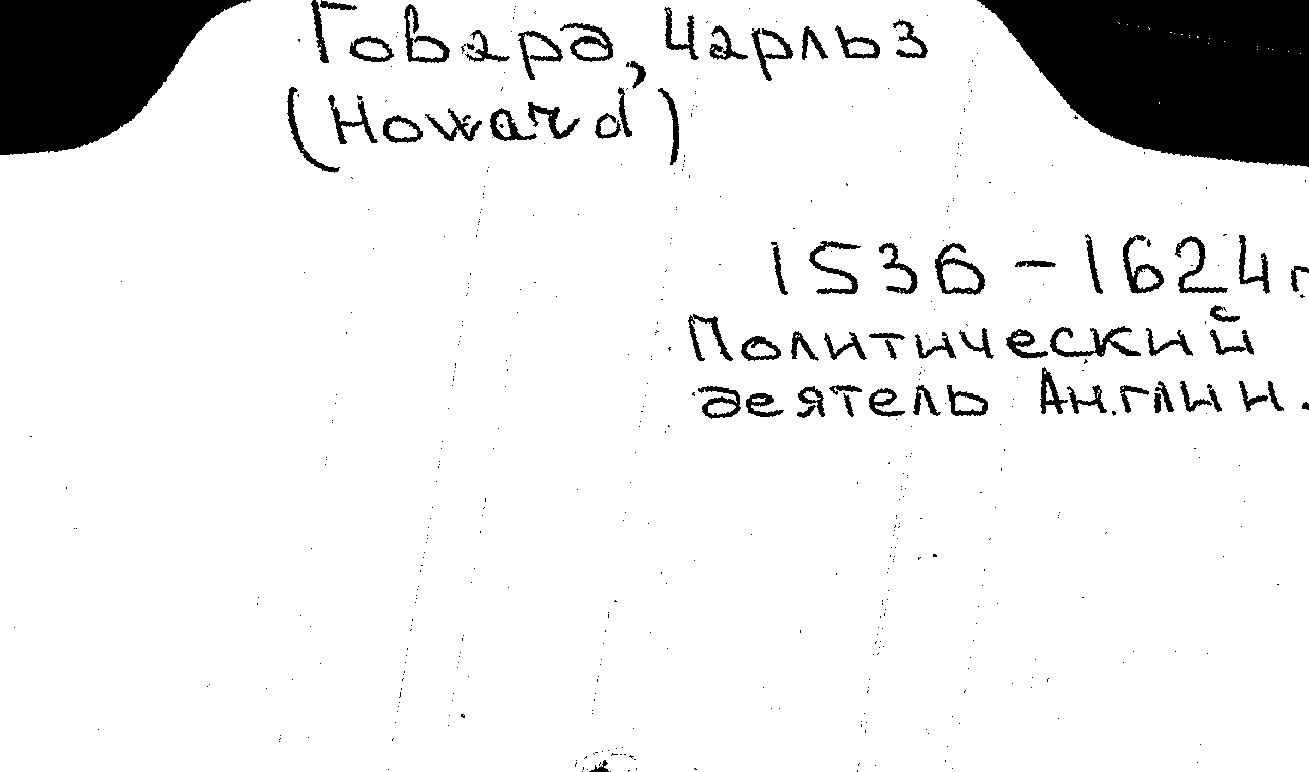 Говард, Чарльз
(Howard)
1536 – 1624 г
Политический
деятель Англии.